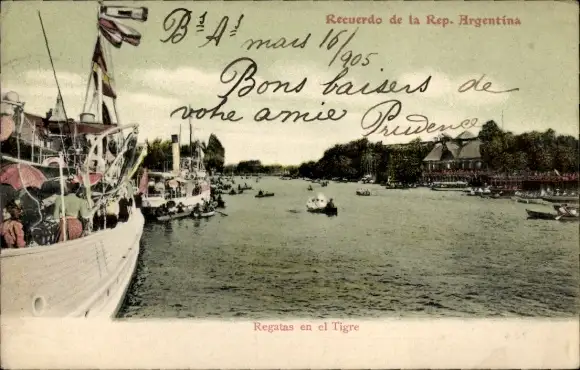 Recuerdo de la Rep. Argentina
Bs As mars 16/905
Bons baisers de
votre amie Prudence
Regatas en el Tigre